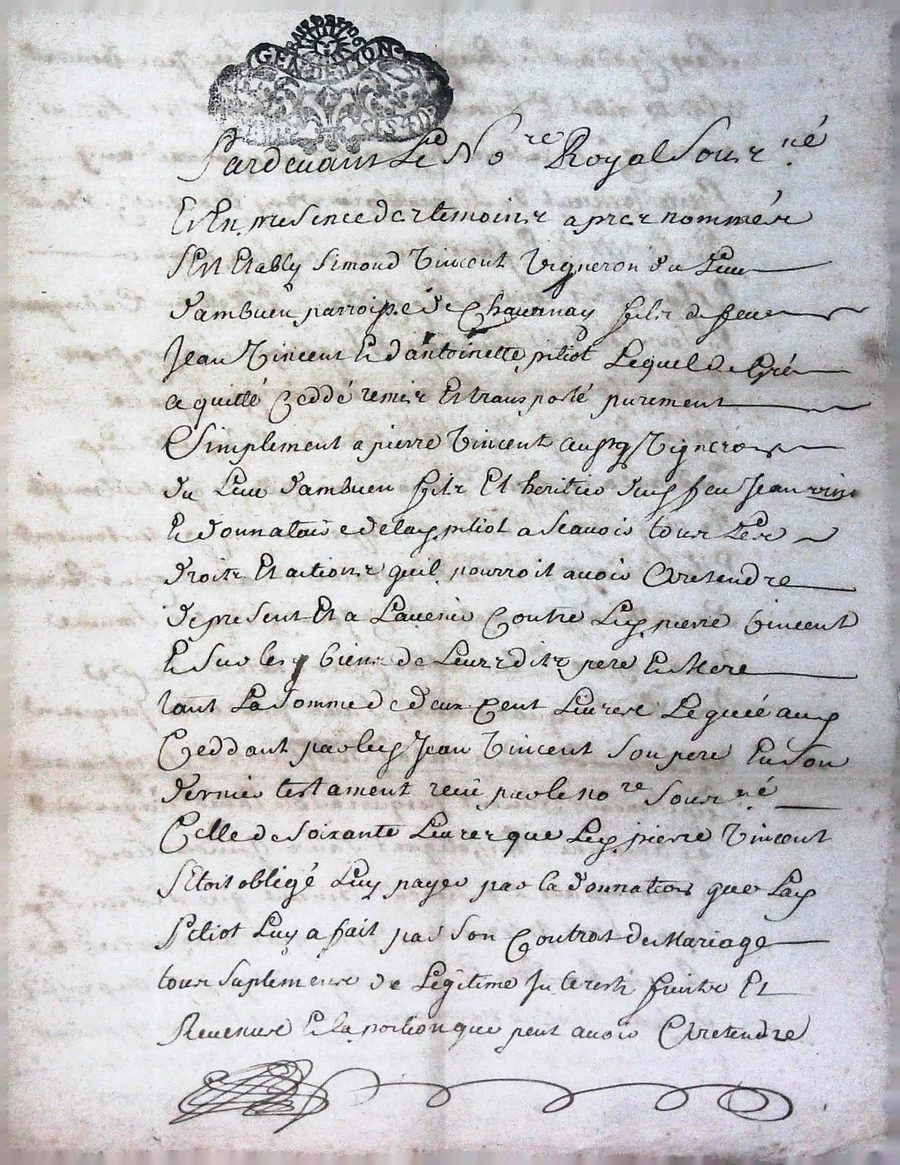 GEN DE LYON
Pardevant Le No re Royal Sous r né
Et En presence des temoins apres nommés
S'est Etably Simond Vincent Vigneron du Lieu
d'ambuen parroisse de Chaunnay fils de feu
Jean Vincent Et d'antoinette pitiot Lequel de Gré
a quitté Ceddé remis Et transporté purement
Et Simplement a pierre Vincent aussy Vigneron
du Lieu d'ambuen fils Et heritier dud feu Jean vinc
Et donnataire de lad pitiot a scavoir tous Les
droits Et actions quil pourroit avoir Et pretendre
de present Et a Lavenir Contre Led pierre Vincent
Et Sur les biens de Leursdits pere Et Mere
tant La Somme de deux Cent Livres Leguéé aud
Ceddant par led Jean Vincent Son pere En Son
dernier testament receu par le no re Sous r né
Celle de Soixante Livres que Led pierre Vincent
S'etoit obligé Luy payer par la donnation que Lad
pitiot Luy a fait par Son Contrat de Mariage
tous Suplements de Legitime Interest fruits Et
Revenus Et la portion que peut avoir Et pretendre